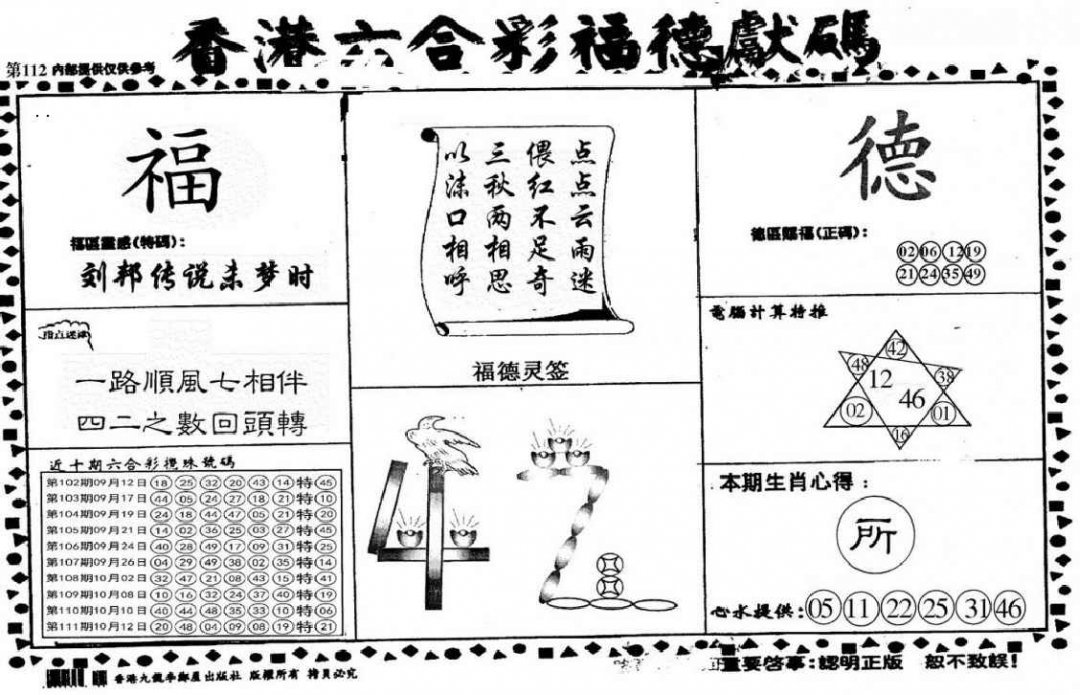 香港六合彩福德獻碼
第112 內部提供仅供參考
福
福區靈感(特碼):
刘邦传说未梦时
指点迷津
一路順風七相伴
四二之數回頭轉
近十期六合彩攪珠號碼
第102期09月12日 18 25 32 20 43 14 特 45
第103期09月17日 44 05 24 27 18 21 特 10
第104期09月19日 24 18 44 47 05 21 特 20
第105期09月21日 14 02 36 25 03 27 特 45
第106期09月24日 40 28 49 17 09 31 特 25
第107期09月26日 04 29 49 38 02 35 特 14
第108期10月02日 32 47 21 08 43 15 特 41
第109期10月08日 10 16 32 24 37 40 特 19
第110期10月10日 40 44 48 35 33 10 特 06
第111期10月12日 20 48 04 09 08 19 特 21
点点云雨迷
偎红不足奇
三秋两相思
以沫口相呼
福德灵签
42
德
德區賜福(正碼):
02 06 12 19
21 24 35 49
電腦計算特推
42
48 38
12
46
02 01
16
本期生肖心得:
所
心水提供: 05 11 22 25 31 46
香港九龍李鄭屋出版社 版權所有 拷貝必究
重要啓事:認明正版 恕不致誤!